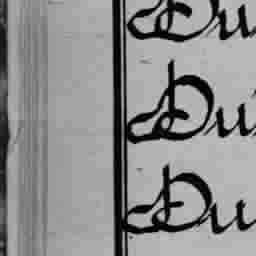 Du
Du
Du